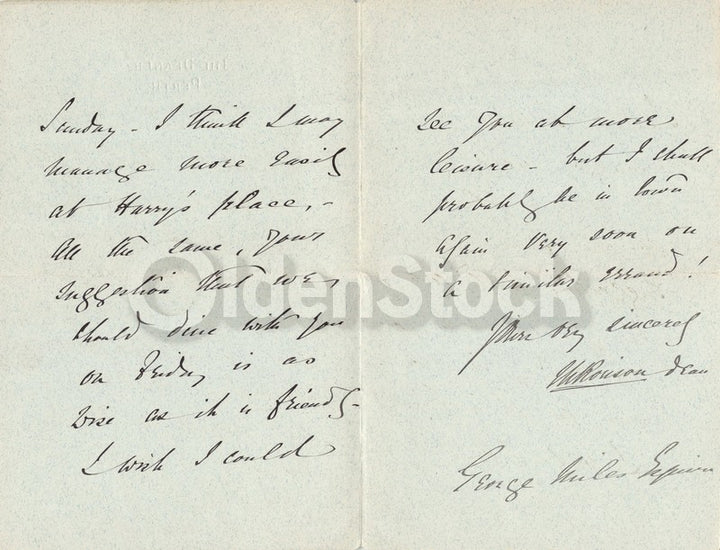 Sunday - I think I may
manage more easily
at Harry's place, -
all the same, your
suggestion that we
should dine with you
on Friday is as
wise as it is friendly -
I wish I could
see you at more
leisure - but I shall
probably be in town
again very soon on
a similar errand!
Yours very sincerely
Dean
George Miles
OldenStock